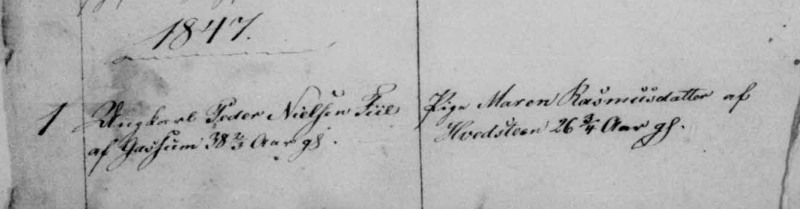 1847.
1 Ungkarl Peder Nielsen Fiil
af Gassum 38 2/3 Aar gl.
Pige Maren Rasmusdatter af
Hvedsteen 26 3/4 Aar gl.